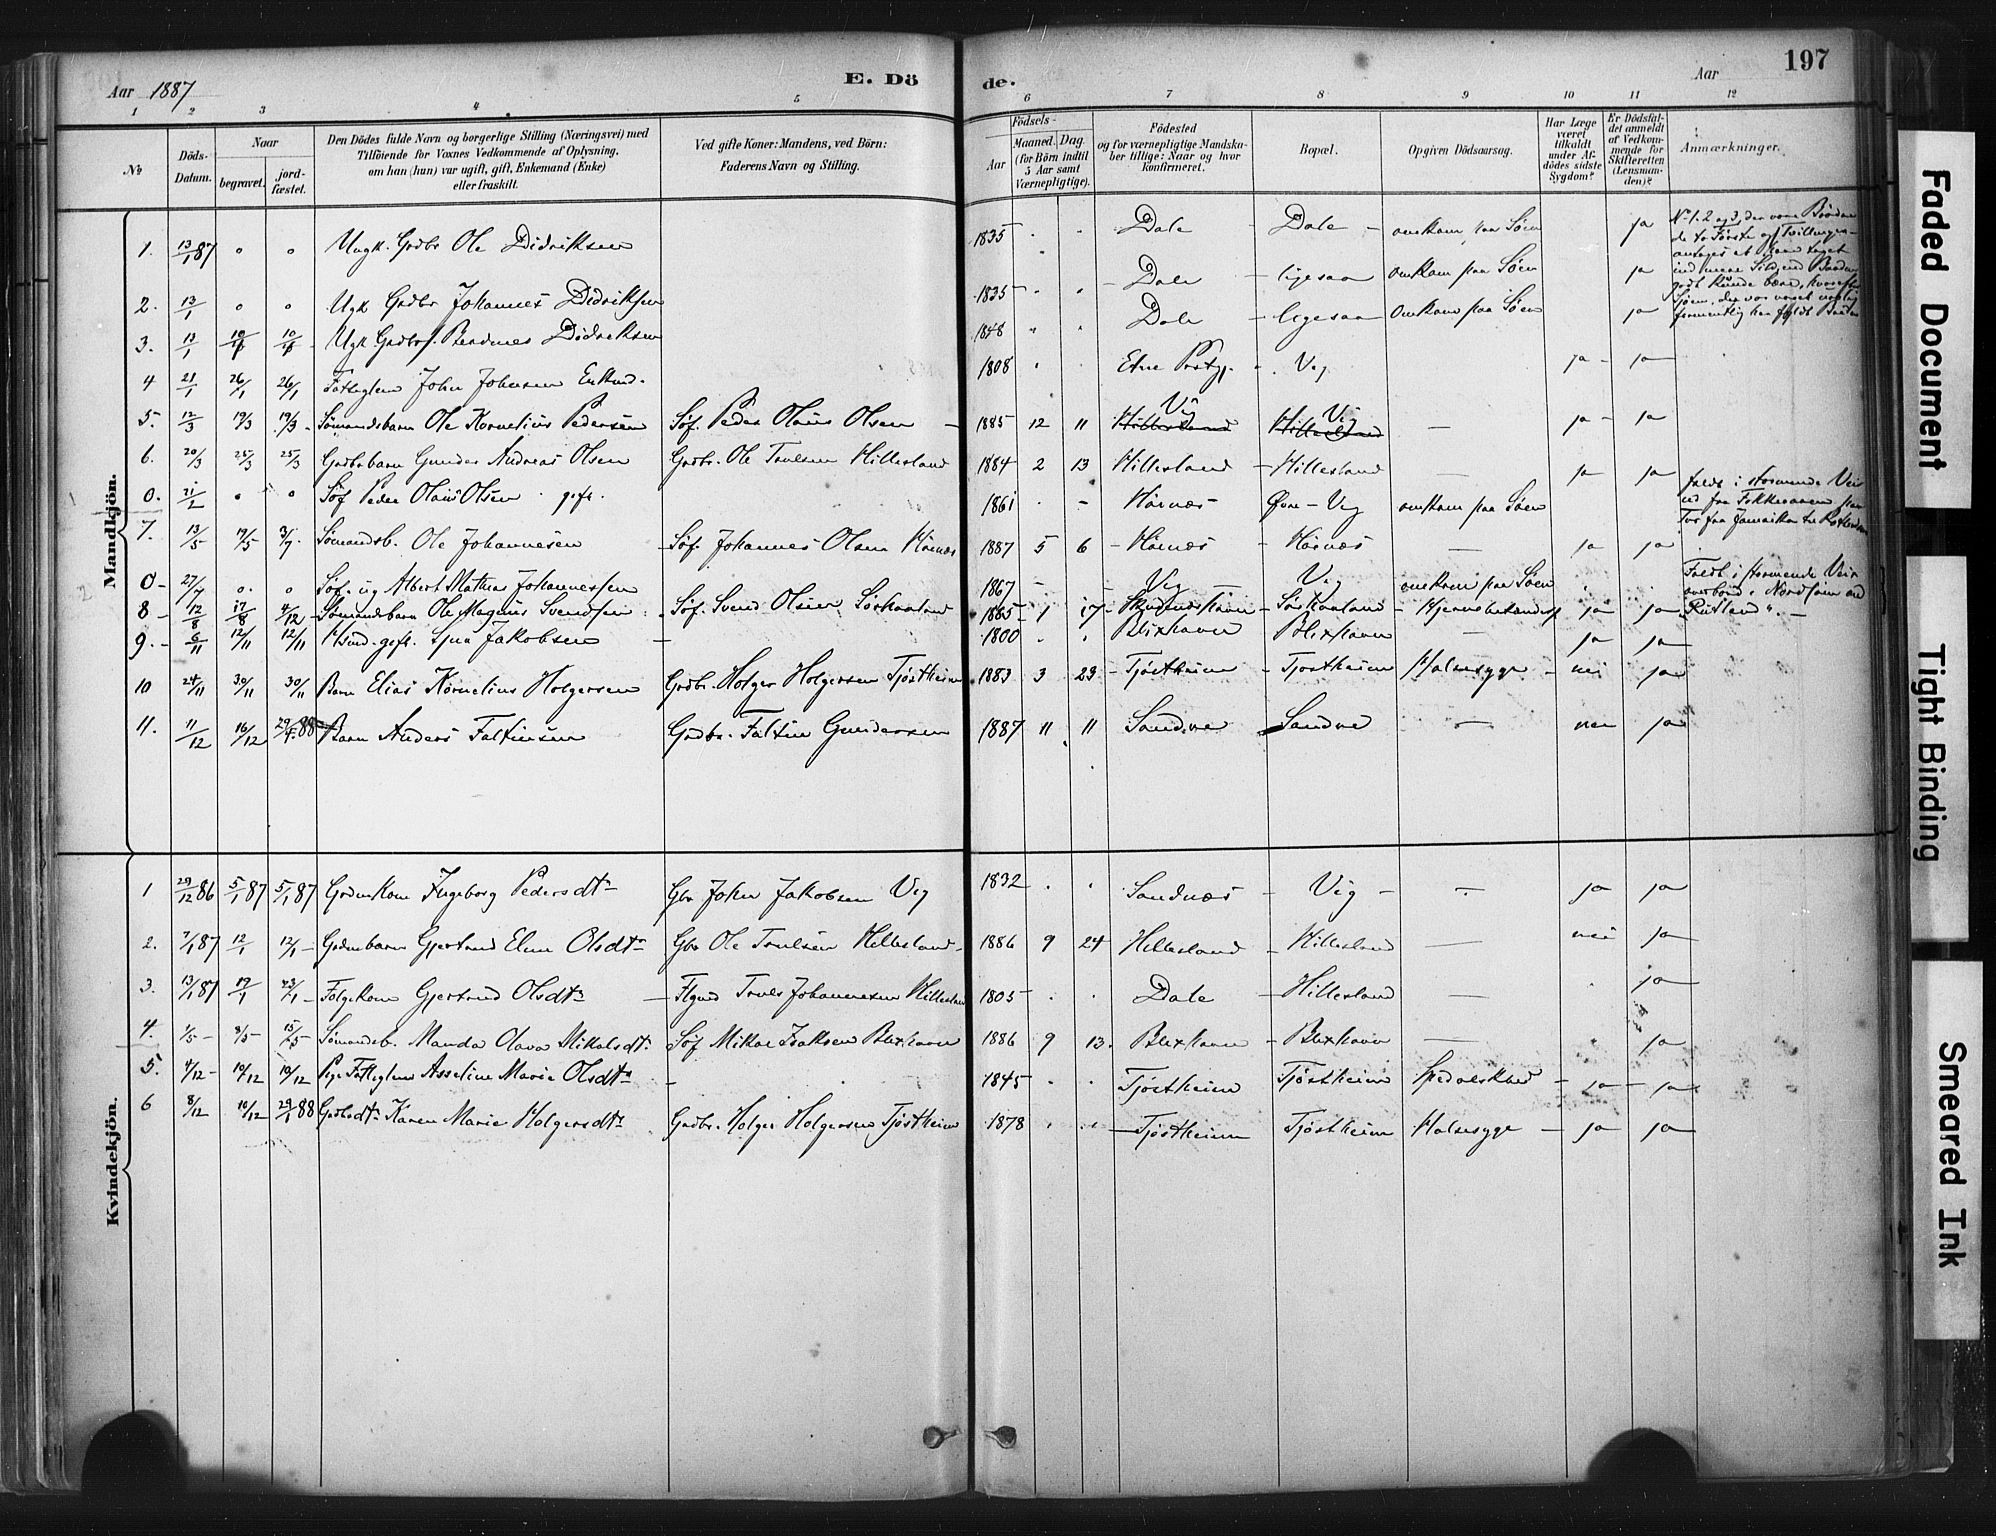 Aar 1887
E. Dö
de.
Aar
197
1 2 3 4 5 6 7 8 9 10 11 12
No
Döds-Datum.
Naar
begravet.
jord-fæstet.
Den Dödes fulde Navn og borgerlige Stilling (Næringsvei) med
Tilföiende for Voxnes Vedkommende af Oplysning,
om han (hun) var ugift, gift, Enkemand (Enke)
eller fraskilt.
Ved gifte Koner: Mandens, ved Börn:
Faderens Navn og Stilling.
Födsels-
Aar
Maaned. Dag
(for Börn indtil
5 Aar samt
Værnepligtige).
Födested
og for værnepligtige Mandska-
ber tillige: Naar og hvor
konfirmeret.
Bopæl.
Opgiven Dödsaarsag.
Har Læge
været
tilkaldt
under Af-
dödes sidste
Sygdom?
Er Dödsfal-
det anmeldt
af Vedkom-
mende for
Skifteretten
(Lensman-
den)?
Anmærkninger.
Mandkjön.
1. 13/1 87 " " Ungk. Grdbr Ole Didriksen 1835 " " Dale - Dale - omkom paa Søen ja
No 1. 2 og 3, der vare Brødre
de to Første og Tvillinger
antages at have taget
ind mere Sild end Baaden
godt kunde bære, hvorefter
Søen, der var noget urolig
formentlig har fyldt Baaden
2. 13/1 " " Ugk Grdbr Johannes Didriksen 1835 " " Dale - ligesaa omkom paa Søen ja
3. 13/1 Ugk Grdbrs. Berdines Didriksen 1848 " " Dale - ligesaa omkom paa Søen ja
4 21/1 26/1 26/1 Fattiglem John Johnsen Enkmd. 1808 " " Etne Prstgj. - Vig ja - ja
5. 12/3 19/3 19/3 - Sømandsbarn Ole Kornelius Pedersen Søf. Peder Olaus Olsen - 1885 12 11 Vig Hillesland Vig Hillesland — ja - ja
6. 20/3 25/3 25/3 Grdbrbarn Gunder Andreas Olsen Grdbr. Ole Trulsen Hillesland 1884 2 13 Hillesland - Hillesland — ja ja
0. 21/2 " " Søf Peder Olaus Olsen gift. 1861 " - Høines Øvre-Vig omkom paa Søen
faldt i stormende Veir
ned fra Fokkeraaen paa
Tur fra Jamaika til Rotterdam
7. 13/5 19/5 3/7 Sømandsb. Ole Johannesen - Søf. Johannes Olsen Høines 1887 5 6 - Høines - Høines — ja ja
0 - 27/7 " " Søf. ug Albert Mathias Johannessen 1867 - - Vig — Vig omkom paa Søen
Faldt i stormende Veir
overbord i Nordsøen ved
Rutland".
8 - 12/8 17/8 4/12 - Sømandsbarn Ole Magnus Svendsen Søf. Svend Olsen Sørhaaland 1885 - 1 17 - Skudeneshavn - Sørhaaland - Hjernebetændelse ja ja
9. - 6/11 12/11 12/11 Husmd. gift. Jakobsen — 1800 " " Blixhavn Blixhavn — ja ja
10 24/11 30/11 30/11 Barn Elias Kornelius Holgersen Grdbr. Holger Holgersen Tjøstheim 1883 3 23 - Tjøstheim - Tjostheim Halssyge - nei ja
11. 11/12 16/12 29/4 88 Barn Anders Faltinsen Grdbr. Faltin Gundersen 1887 11 11 Sandve Sandve — nei ja
Kvindekjön.
1 29/12 86 5/1 87 5/1 87 Grdmkone Ingeborg Pedersdtr Gbr John Jakobsen Vig 1832 " " Sandnæs - Vig - — ja ja
2. 7/1 87 12/1 12/1 - Grdmbarn Gjertrud Eline Olsdtr Gbr Ole Trulsen Hillesland 1886 9 24 Hillesland - Hillesland — nei ja
3. 13/1 87 19/1 23/1 - Folgekone Gjertrud Olsdtr — Flgmd Truls Johannesen Hillesland 1805 " " Dale - Hillesland — ja
4. 1/5 - 8/5 - 15/5 - Sømandsb. Manda Olava Mikalsdtr. Søf Mikal Isaksen Blixhavn 1886 9 13. Blixhavn - Blixhavn — ja
5. 4/12 - 10/12 10/12 Pige Fattiglem Asseline Marie Olsdtr - 1845 " " Tjøstheim Tjøstheim Spedalskhed - ja - ja
6 8/12 10/12 29/4 88 Grdbrdtr Karen Marie Holgersdtr Grdbr. Holger Holgersen Tjøstheim 1878 " " - Tjøstheim Tjøstheim Halssyge - ja ja
Faded Document
Tight Binding
Smeared Ink